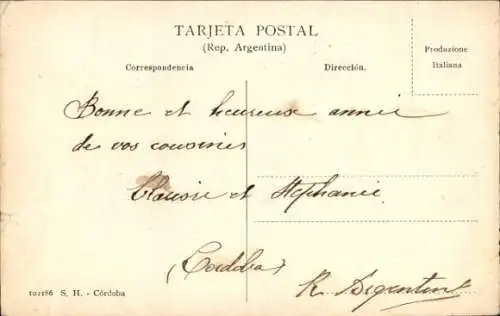 TARJETA POSTAL
(Rep. Argentina)
Correspondencia
Dirección.
Produzione
Italiana
Bonne et heureuse année
de vos cousines
et Stéphanie
(Cordoba)
R. Argentine
102186 S. H. - Córdoba